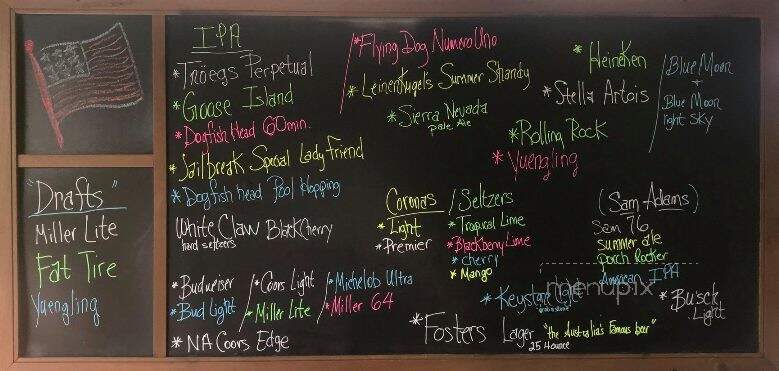 "Drafts"
Miller Lite
Fat Tire
Yuengling
IPA
* Tröegs Perpetual
* Goose Island
* Dogfish Head 60 min.
* Jailbreak Special Lady Friend
* Dogfish head Pool Hopping
White Claw Black Cherry
hard seltzers
* Budweiser
* Bud Light
* Coors Light
* Miller Lite
* Michelob Ultra
* Miller 64
* NA Coors Edge
* Flying Dog Numero Uno
* Leinenkugel's Summer Shandy
* Sierra Nevada
Pale Ale
* Heineken
* Stella Artois
* Rolling Rock
* Yuengling
Blue Moon
+
Blue Moon
light Sky
Coronas
* Light
* Premier
Seltzers
* Tropical Lime
* Blackberry Lime
* cherry
* Mango
(Sam Adams)
Sam 76
summer ale
porch Rocker
American IPA
menupix
* Keystone
* Busck Light
* Fosters Lager "the Australia's Famous beer"
25.4 ounce